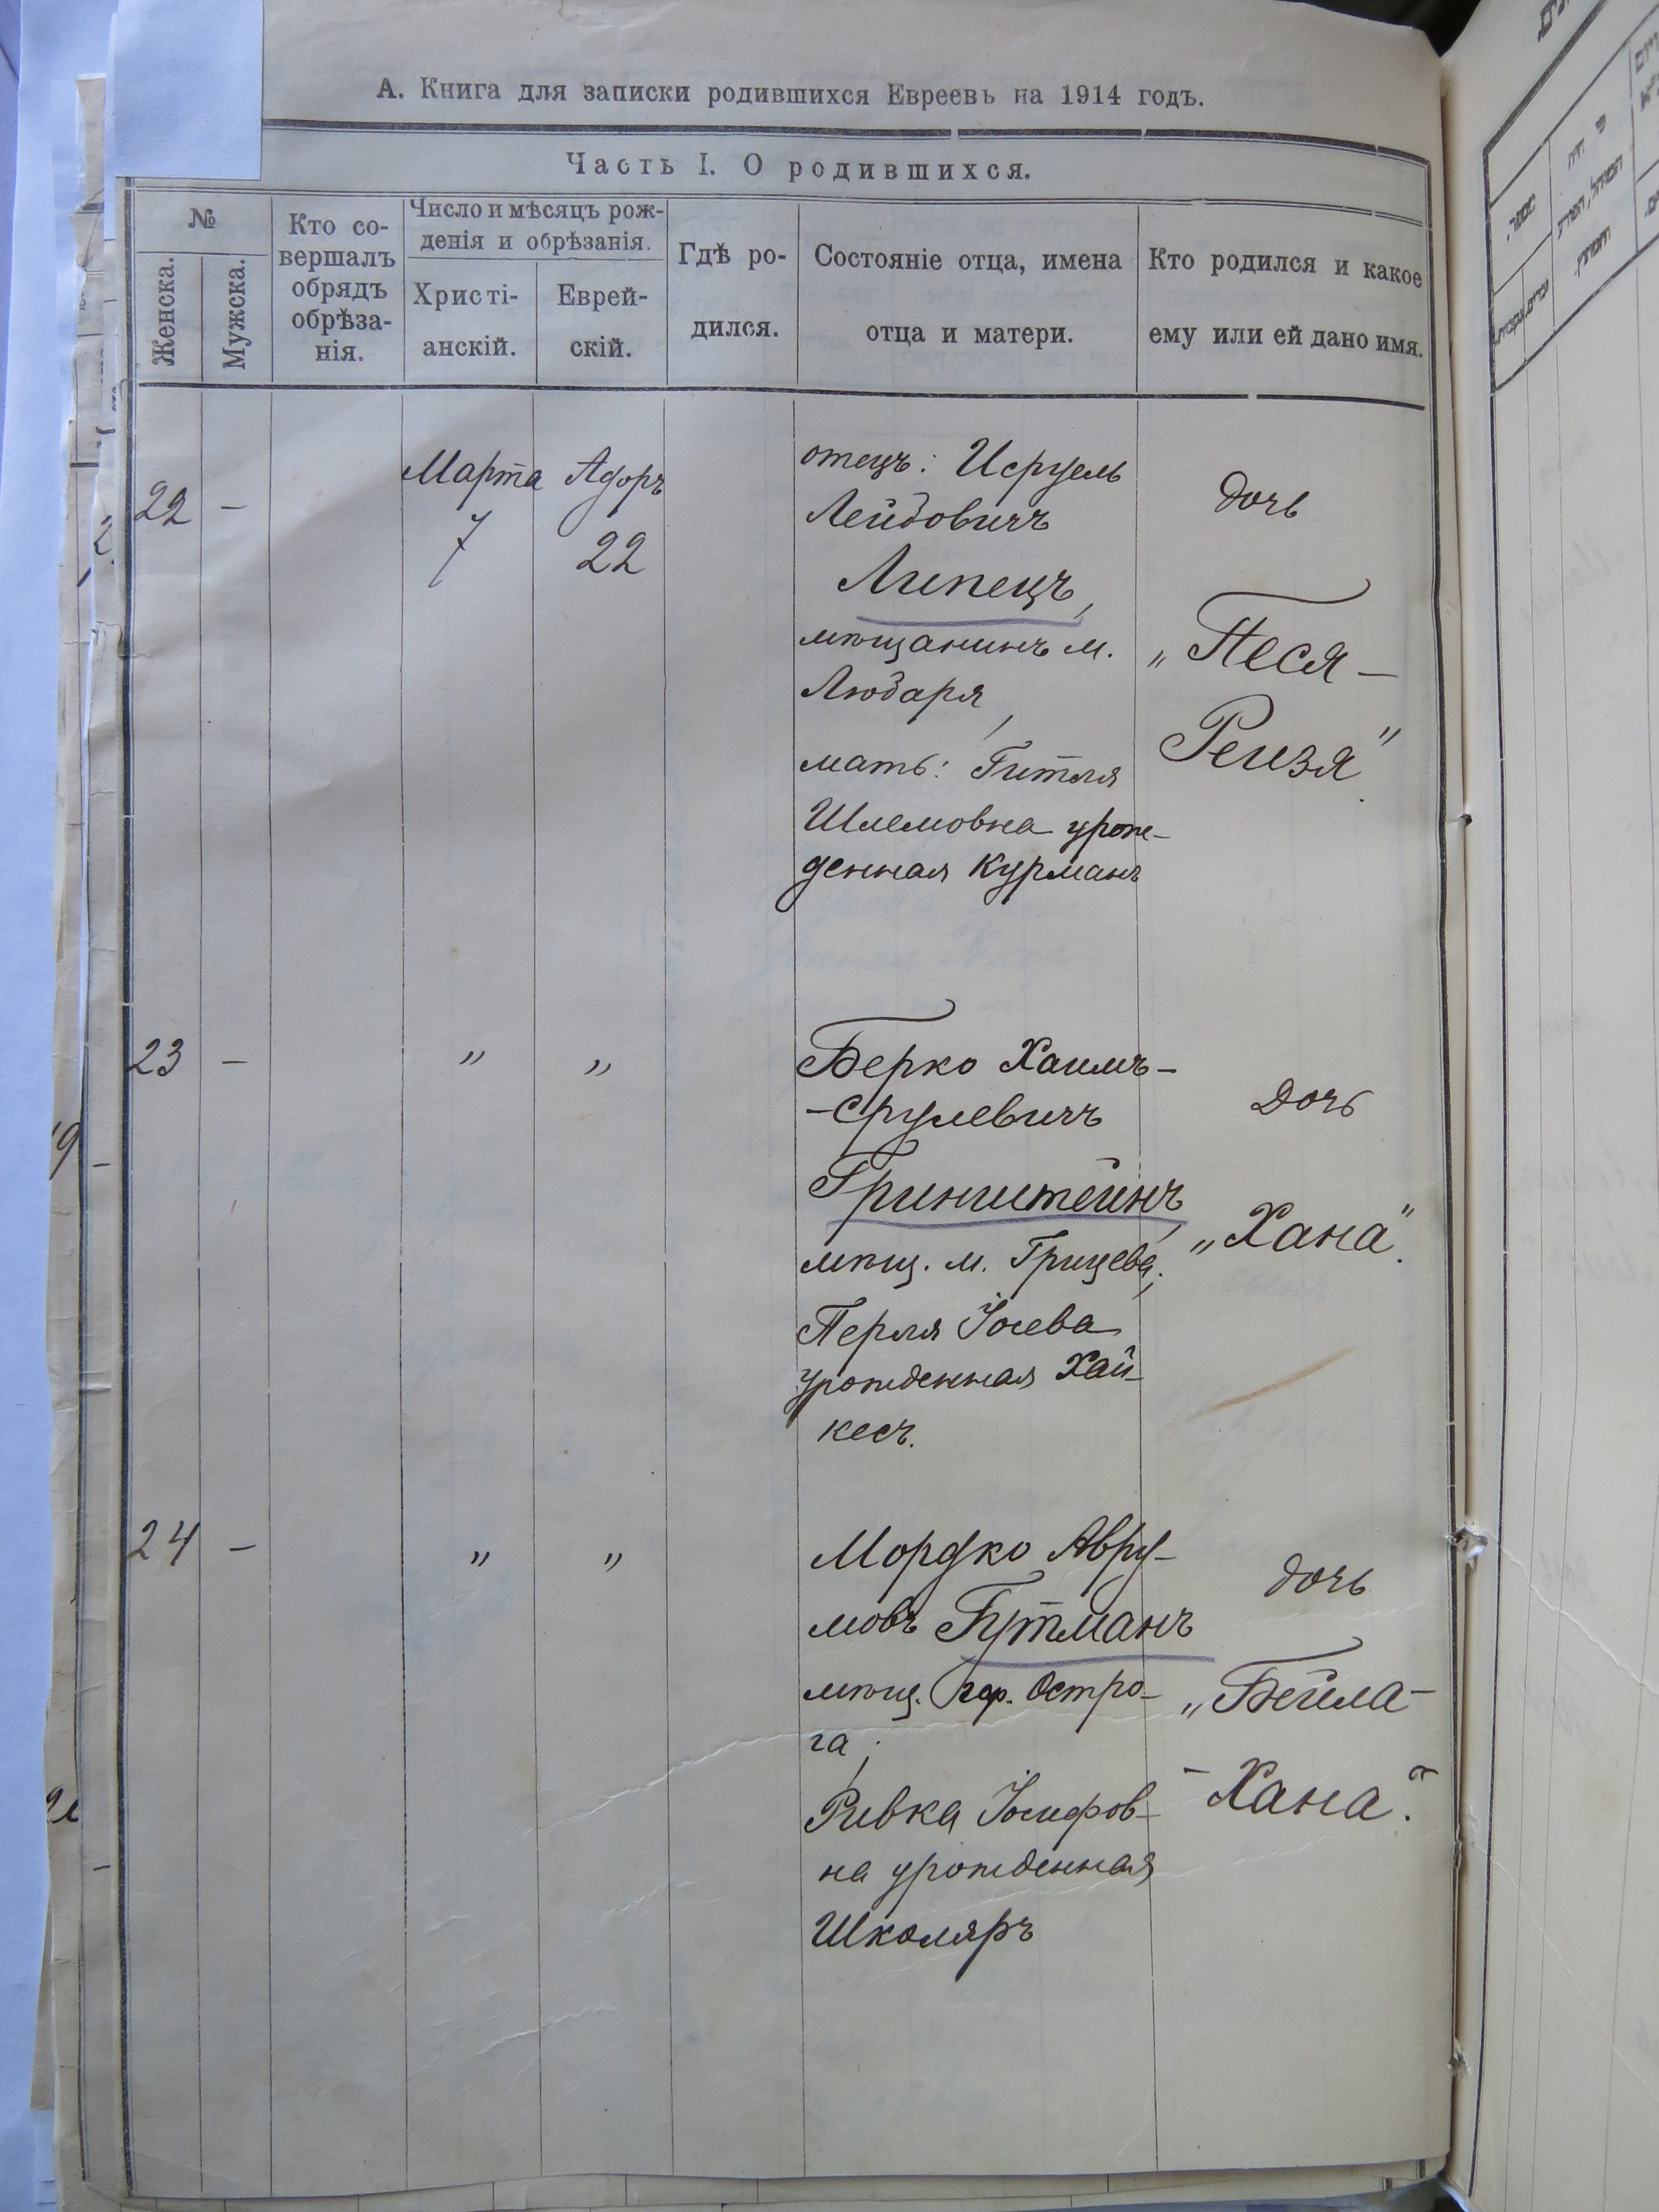 А. Книга для записки родившихся Евреевъ на 1914 годъ.
Часть I. О родившихся.
№
Женска.
Мужска.
Кто со-
вершалъ
обрядъ
обрѣза-
нія.
Число и мѣсяцъ рож-
денія и обрѣзанія.
Христі-
анскій.
Еврей-
скій.
Гдѣ ро-
дился.
Состояніе отца, имена
отца и матери.
Кто родился и какое
ему или ей дано имя.
22 –
Марта
7
Адоръ
22
отецъ: Исруель
Лейбовичъ
Липецъ,
мѣщанинъ м.
Любаря,
мать: Гитля
Шлемовна урож-
денная Курманъ
дочь
„Песя –
Рейзя".
23 –
"
"
Берко Хаимъ –
– Срулевичъ
Гринштейнъ,
мѣщ. м. Грицева;
Перля Іосева
урожденная Хай-
кесъ.
Дочь
„Хана".
24 –
"
"
Мордко Авру-
мовъ Гутманъ
мѣщ. гор. Остро-
га;
Ривка Іосифов-
на урожденная
Школяръ
дочь
„Бейла –
– Хана".